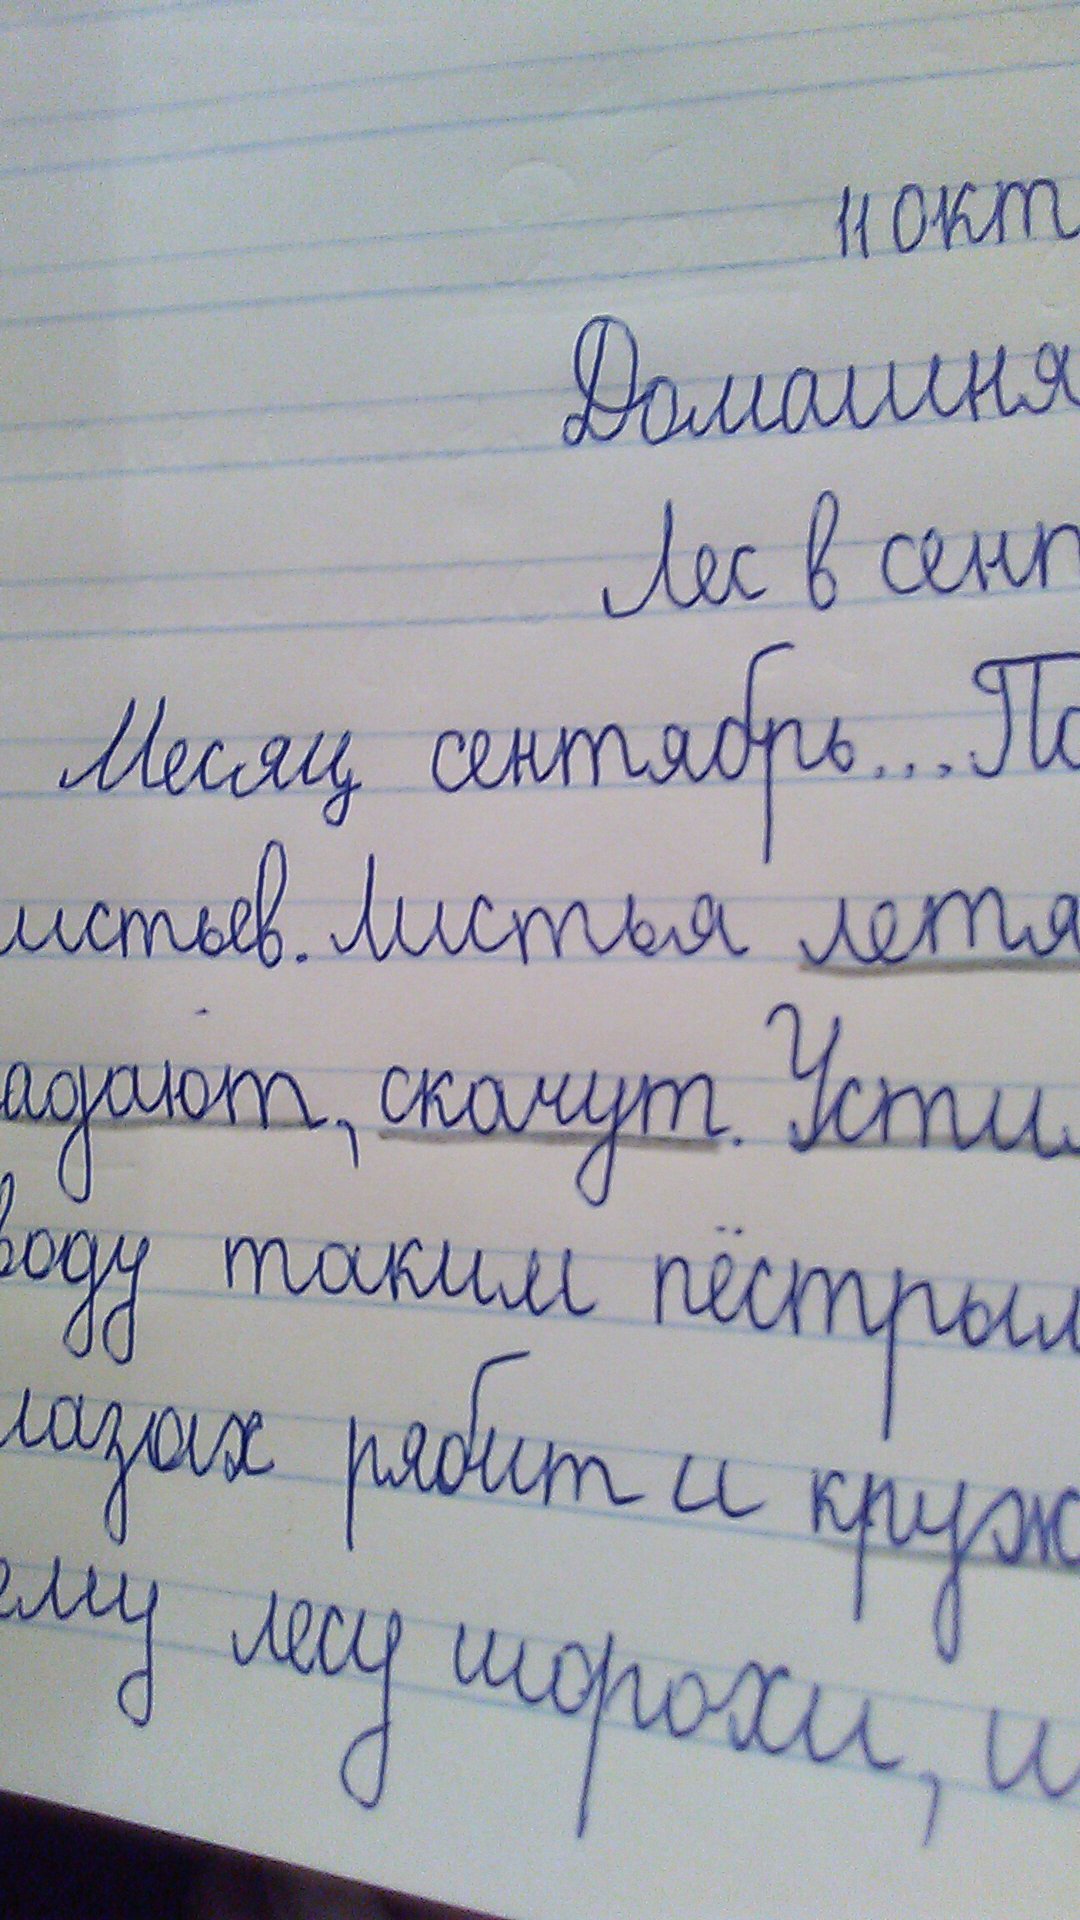 11 окт
Домашня
Лес в сент
Месяц сентябрь... По
истьев. Листья летя
адают, скачут. Устил
воду таким пёстрым
лазах рябит и круж
ему лесу шорохи, и